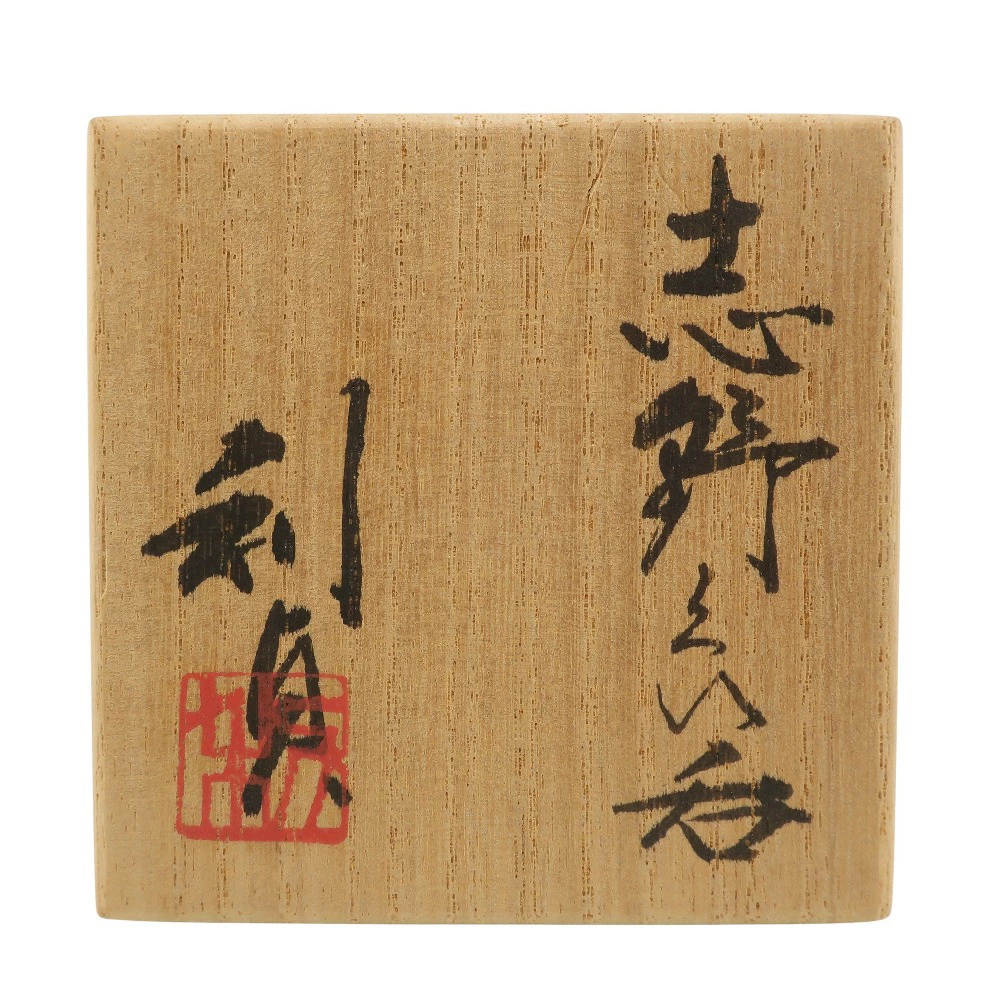 志野ぐい呑
利貞